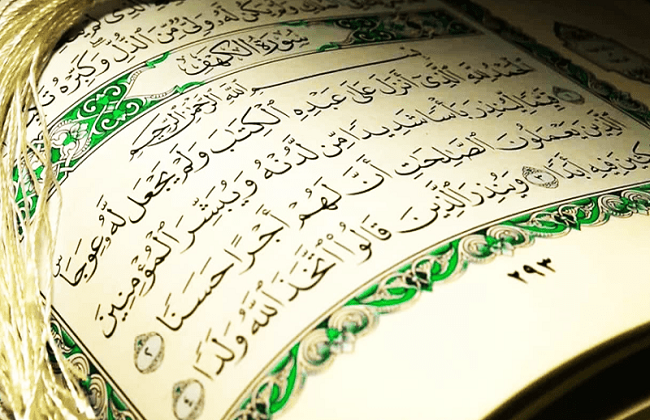 وَلَمْ يَكُن لَّهُۥ وَلِىٌّ مِّنَ ٱلذُّلِّ وَكَبِّرْهُ
سُورَةُ الكَهْفِ
بِسْمِ ٱللَّهِ ٱلرَّحْمَٰنِ ٱلرَّحِيمِ
ٱلْحَمْدُ لِلَّهِ ٱلَّذِىٓ أَنزَلَ عَلَىٰ عَبْدِهِ ٱلْكِتَٰبَ وَلَمْ يَجْعَل لَّهُۥ عِوَجَاۜ ١
قَيِّمًا لِّيُنذِرَ بَأْسًا شَدِيدًا مِّن لَّدُنْهُ وَيُبَشِّرَ ٱلْمُؤْمِنِينَ
ٱلَّذِينَ يَعْمَلُونَ ٱلصَّٰلِحَٰتِ أَنَّ لَهُمْ أَجْرًا حَسَنًا ٢
مَّٰكِثِينَ فِيهِ أَبَدًا ٣ وَيُنذِرَ ٱلَّذِينَ قَالُوا۟ ٱتَّخَذَ ٱللَّهُ وَلَدًا ٤
٢٩٣